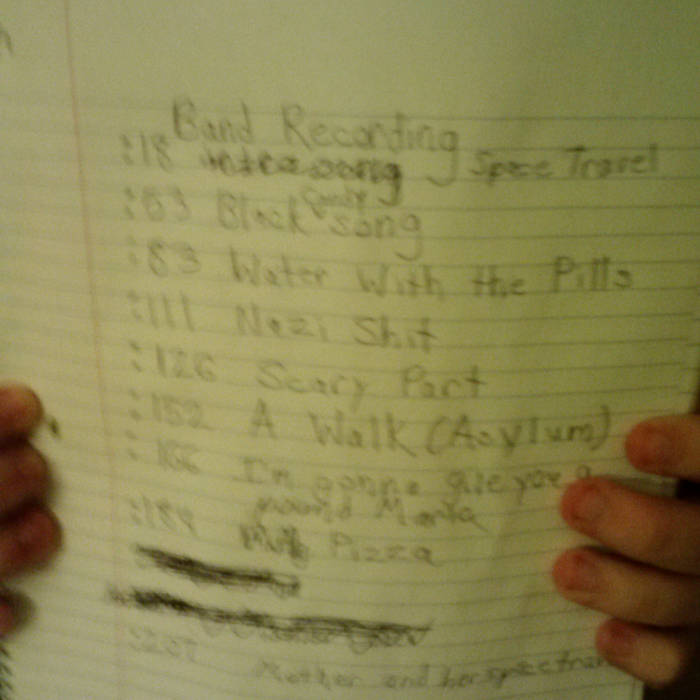 Band Recording
:18 intro song Space Travel
:53 Black Candy song
:83 Water With the Pills
:111 Nazi Shit
:126 Scary Part
:152 A Walk (Asylum)
:166 I'm gonna give you a
:184 Pizza
:207 Mother and her